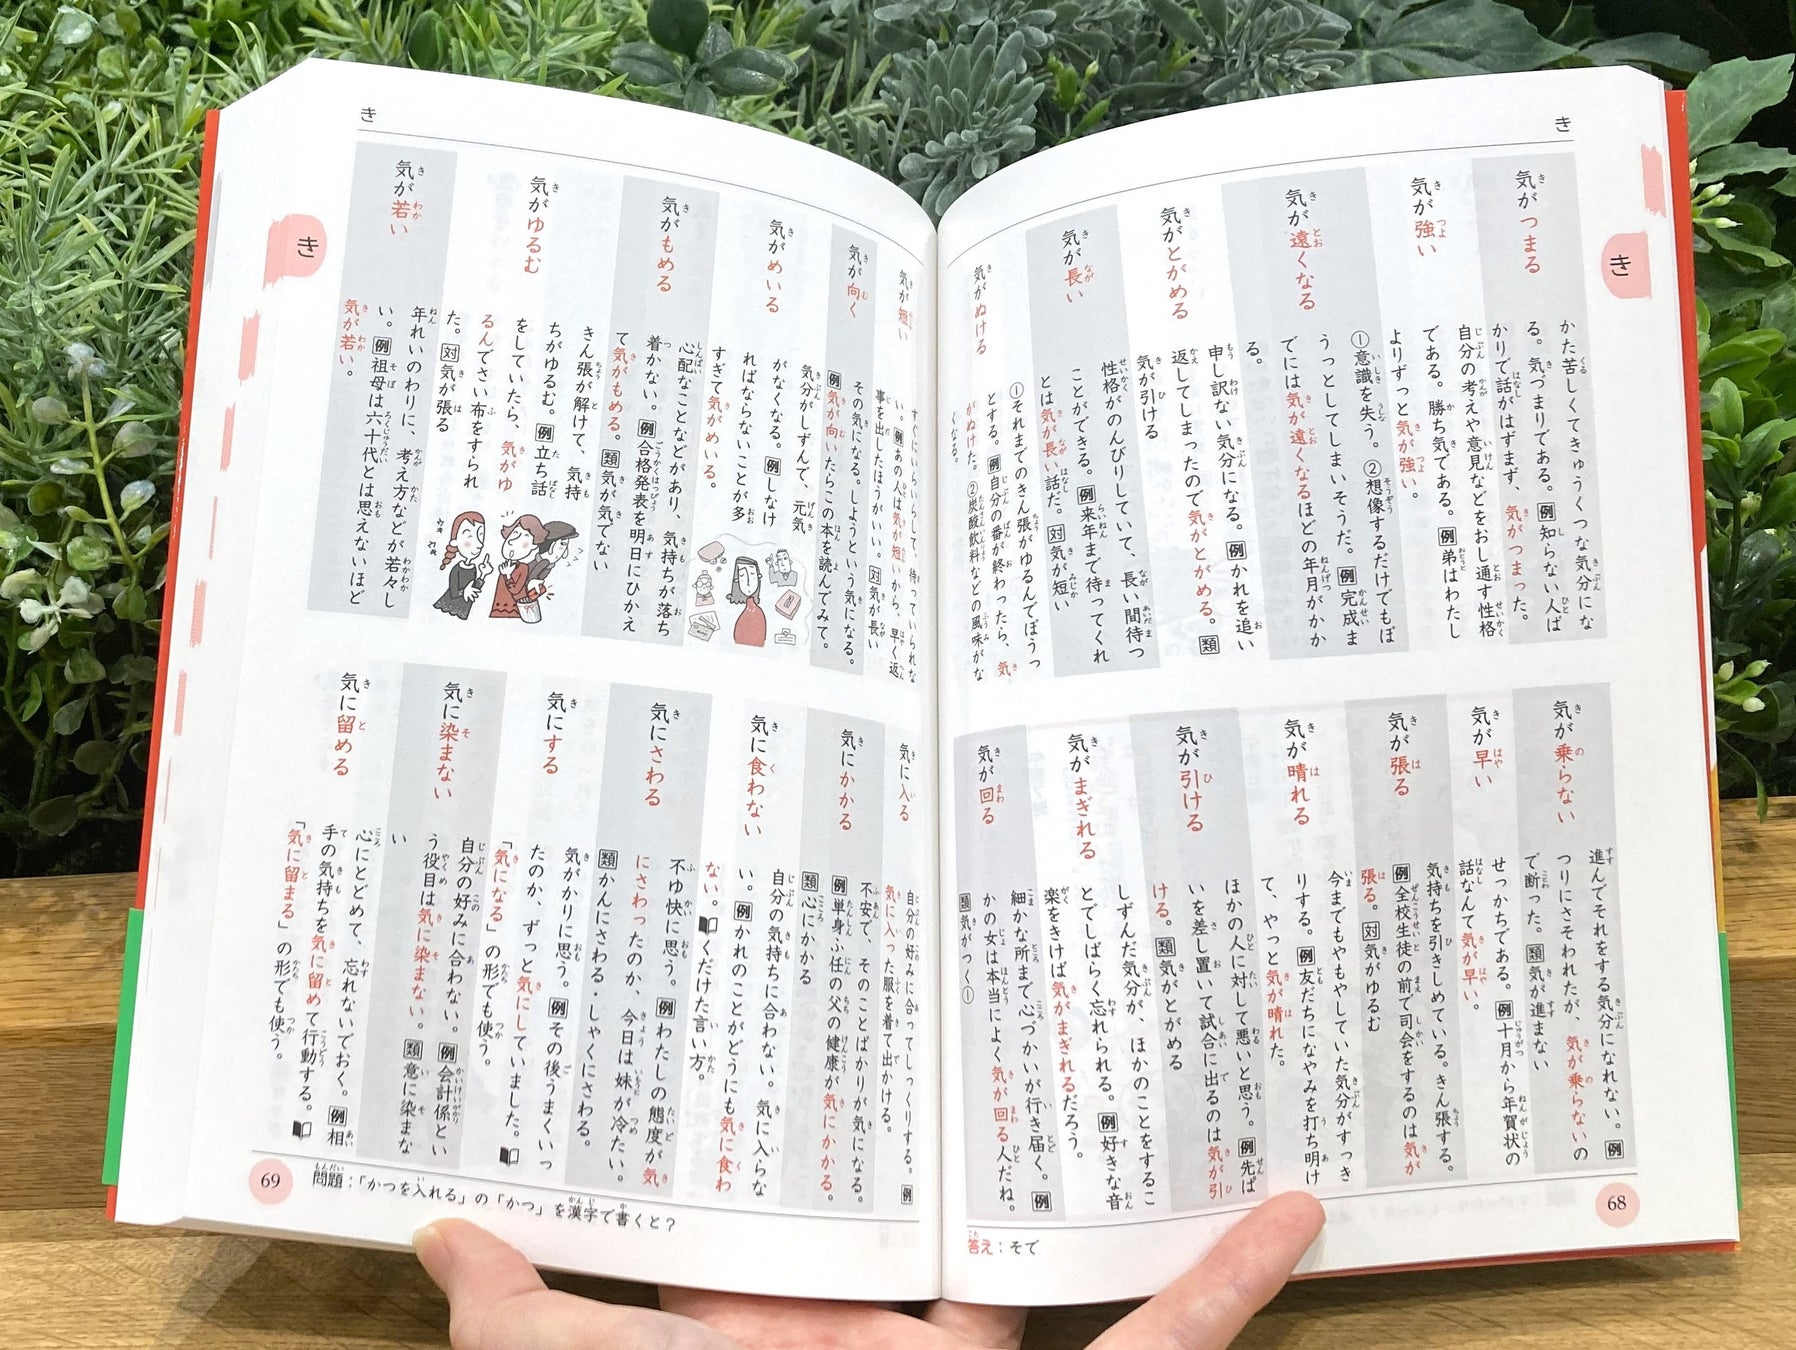 き
き
気がつまる
かた苦しくてきゅうくつな気分にな
る。気づまりである。例知らない人ば
かりで話がはずまず、気がつまった。
気が強い
自分の考えや意見などをおし通す性格
である。勝ち気である。例弟はわたし
よりずっと気が強い。
気が遠くなる
①意識を失う。②想像するだけでもぼ
うっとしてしまいそうだ。例完成ま
でには気が遠くなるほどの年月がかか
る。
気がとがめる
申し訳ない気分になる。例かれを追い
返してしまったので気がとがめる。類
気が引ける
気が長い
性格がのんびりしていて、長い間待つ
ことができる。例来年まで待ってくれ
とは気が長い話だ。対気が短い
気がぬける
①それまでのきん張がゆるんでぼうっ
とする。例自分の番が終わったら、気
がぬけた。②炭酸飲料などの風味がな
くなる。
気が乗らない
進んでそれをする気分になれない。例
つりにさそわれたが、気が乗らないの
で断った。類気が進まない
気が早い
せっかちである。例十月から年賀状の
話なんて気が早い。
気が張る
気持ちを引きしめている。きん張する。
例全校生徒の前で司会をするのは気が
張る。対気がゆるむ
気が晴れる
今までもやもやしていた気分がすっき
りする。例友だちになやみを打ち明け
て、やっと気が晴れた。
気が引ける
ほかの人に対して悪いと思う。例先ぱ
いを差し置いて試合に出るのは気が引
ける。類気がとがめる
気がまぎれる
しずんだ気分が、ほかのことをするこ
とでしばらく忘れられる。例好きな音
楽をきけば気がまぎれるだろう。
気が回る
細かな所まで心づかいが行き届く。例
かの女は本当によく気が回る人だね。
類気がつく①
答え:そで
68
き
き
気が短い
すぐにいらいらして、待っていられな
い。例あの人は気が短いから、早く返
事を出したほうがいい。対気が長い
気が向く
その気になる。しようという気になる。
例気が向いたらこの本を読んでみて。
気がめいる
気分がしずんで、元気
がなくなる。例しなけ
ればならないことが多
すぎて気がめいる。
気がもめる
心配なことなどがあり、気持ちが落ち
着かない。例合格発表を明日にひかえ
て気がもめる。類気が気でない
気がゆるむ
きん張が解けて、気持
ちがゆるむ。例立ち話
をしていたら、気がゆ
るんでさい布をすられ
た。対気が張る
気が若い
年れいのわりに、考え方などが若々し
い。例祖母は六十代とは思えないほど
気が若い。
気に入る
自分の好みに合ってしっくりする。例
気に入った服を着て出かける。
気にかかる
不安で、そのことばかりが気になる。
例単身ふ任の父の健康が気にかかる。
類心にかかる
気に食わない
自分の気持ちに合わない。気に入らな
い。例かれのことがどうにも気に食わ
ない。くだけた言い方。
気にさわる
不ゆ快に思う。例わたしの態度が気
にさわったのか、今日は妹が冷たい。
類かんにさわる・しゃくにさわる。
気にする
気がかりに思う。例その後うまくいっ
たのか、ずっと気にしていました。
「気になる」の形でも使う。
気に染まない
自分の好みに合わない。例会計係とい
う役目は気に染まない。類意に染まな
い
気に留める
心にとどめて、忘れないでおく。例相
手の気持ちを気に留めて行動する。
「気に留まる」の形でも使う。
69
問題:「かつを入れる」の「かつ」を漢字で書くと?